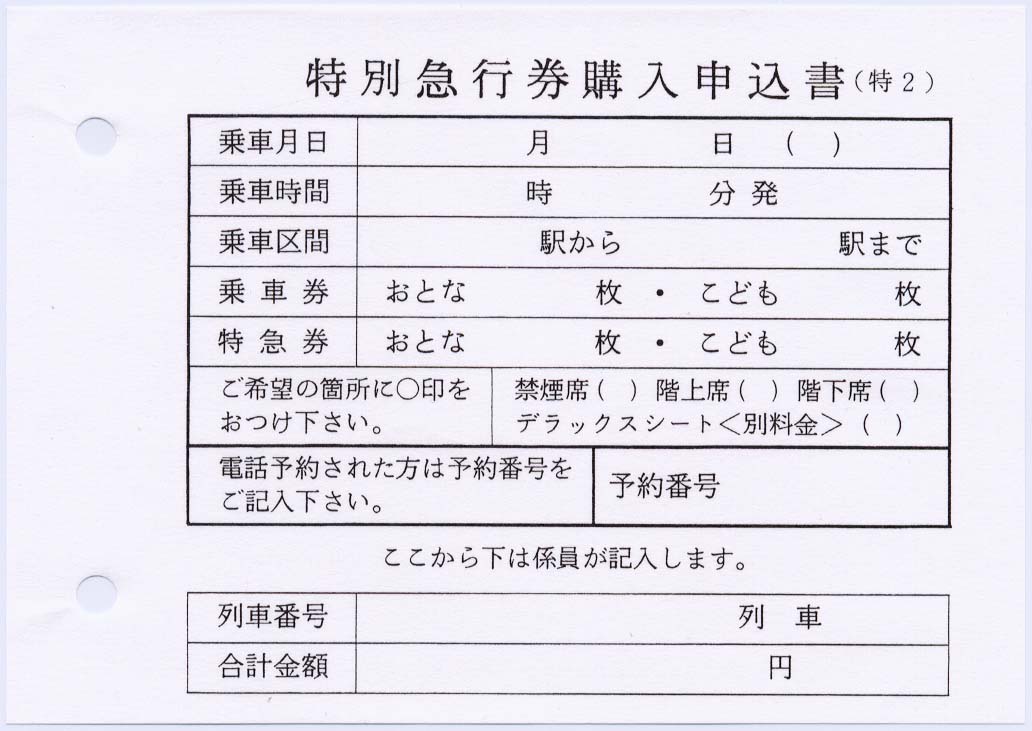 特別急行券購入申込書(特2)
乗車月日 月 日 ( )
乗車時間 時 分 発
乗車区間 駅から 駅まで
乗車券 おとな 枚 ・ こども 枚
特急券 おとな 枚 ・ こども 枚
ご希望の箇所に○印を
おつけ下さい。
禁煙席( ) 階上席( ) 階下席( )
デラックスシート<別料金> ( )
電話予約された方は予約番号を
ご記入下さい。
予約番号
ここから下は係員が記入します。
列車番号 列 車
合計金額 円